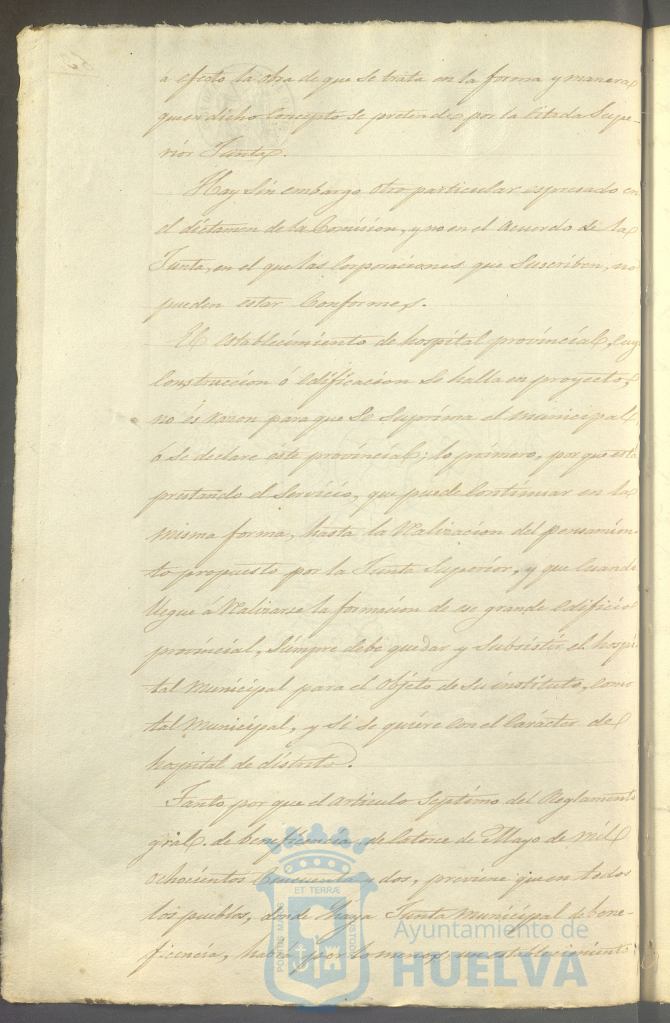 a efecto la obra de que se trata en la forma y manera
que en dicho concepto se pretende por la citada Supe-
rior Junta.
Hay sin embargo otro particular espresado en
el dictamen de la Comision, y no en el acuerdo de la
Junta, en el que las Corporaciones que Suscriben, no
pueden estar Conformes.
El establecimiento de hospital provincial, cuya
Construccion ó edificacion se halla en proyecto,
no es razon para que se Suprima el municipal,
ó se declare este provincial; lo primero, por que está
prestando el Servicio, que puede Continuar en la
misma forma, hasta la realizacion del pensamien-
to propuesto por la Junta Superior, y que cuando
llegue á realizarse la formacion de ese grande edificio
provincial, siempre debe quedar y subsistir el hospi-
tal municipal para el objeto de su instituto, como
tal municipal, y si se quiere con el Carácter de
hospital de distrito.
Tanto por que el articulo septimo del Reglamento
gral. de beneficencia, de Catorce de Mayo de mil
ochocientos Cincuenta y dos, previene que en todos
los pueblos, donde haya Junta municipal de bene-
ficencia, habrá por lo menos un establecimiento
ET TERRÆ
PORTUS MARIS
CUSTODIA
Ayuntamiento de
HUELVA